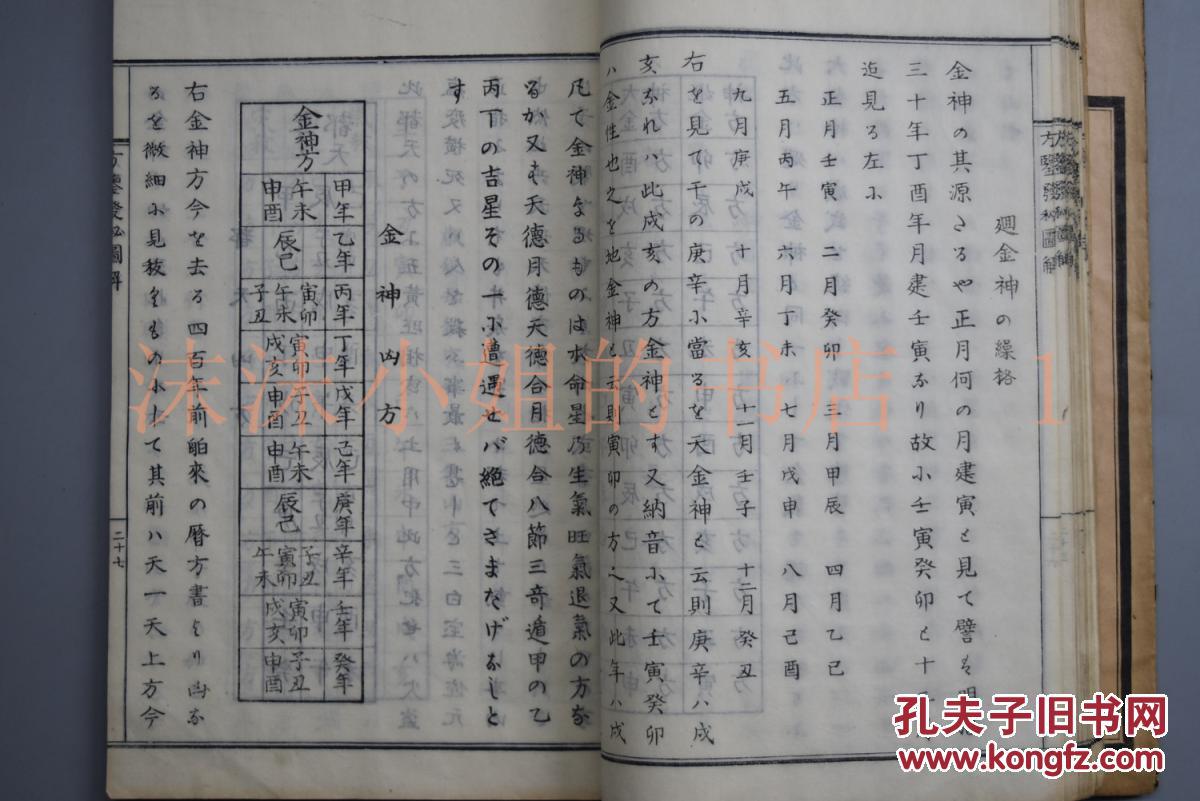 廻金神の繰格
金神の其源たるや正月何の月建寅と見て譬は明
三十年丁酉年月建壬寅なり故に壬寅癸卯と十
迄見る左に
正月壬寅 二月癸卯 三月甲辰 四月乙巳
五月丙午 六月丁未 七月戊申 八月己酉
九月庚戌 十月辛亥 十一月壬子 十二月癸丑
右を見て干の庚辛に當るを天金神と云則庚辛ハ戌
亥なれハ此戌亥の方金神とす又納音にて壬寅癸卯
ハ金性也之を地金神と云則寅卯の方之又此年ハ戌
凡て金神なるものは水命星乃生氣旺氣退氣の方な
るか又は天德月德天德合月德合八節三奇遁甲の乙
丙丁の吉星その一に遭遇せバ絶てさまたげなしと
す
金神凶方
金神方
甲年 午未申酉
乙年 辰巳
丙年 寅卯午未子丑
丁年 寅卯戌亥
戊年 子丑申酉
己年 午未申酉
庚年 辰巳
辛年 子丑寅卯午未
壬年 寅卯戌亥
癸年 子丑申酉
右金神方今を去る四百年前舶來の曆方書より出な
るを微細に見枝をものにして其前ハ天一天上方今
方鑒發秘圖解
二十七
方鑒發秘圖解
沫沫小姐的书店 1
孔夫子旧书网
www.kongfz.com